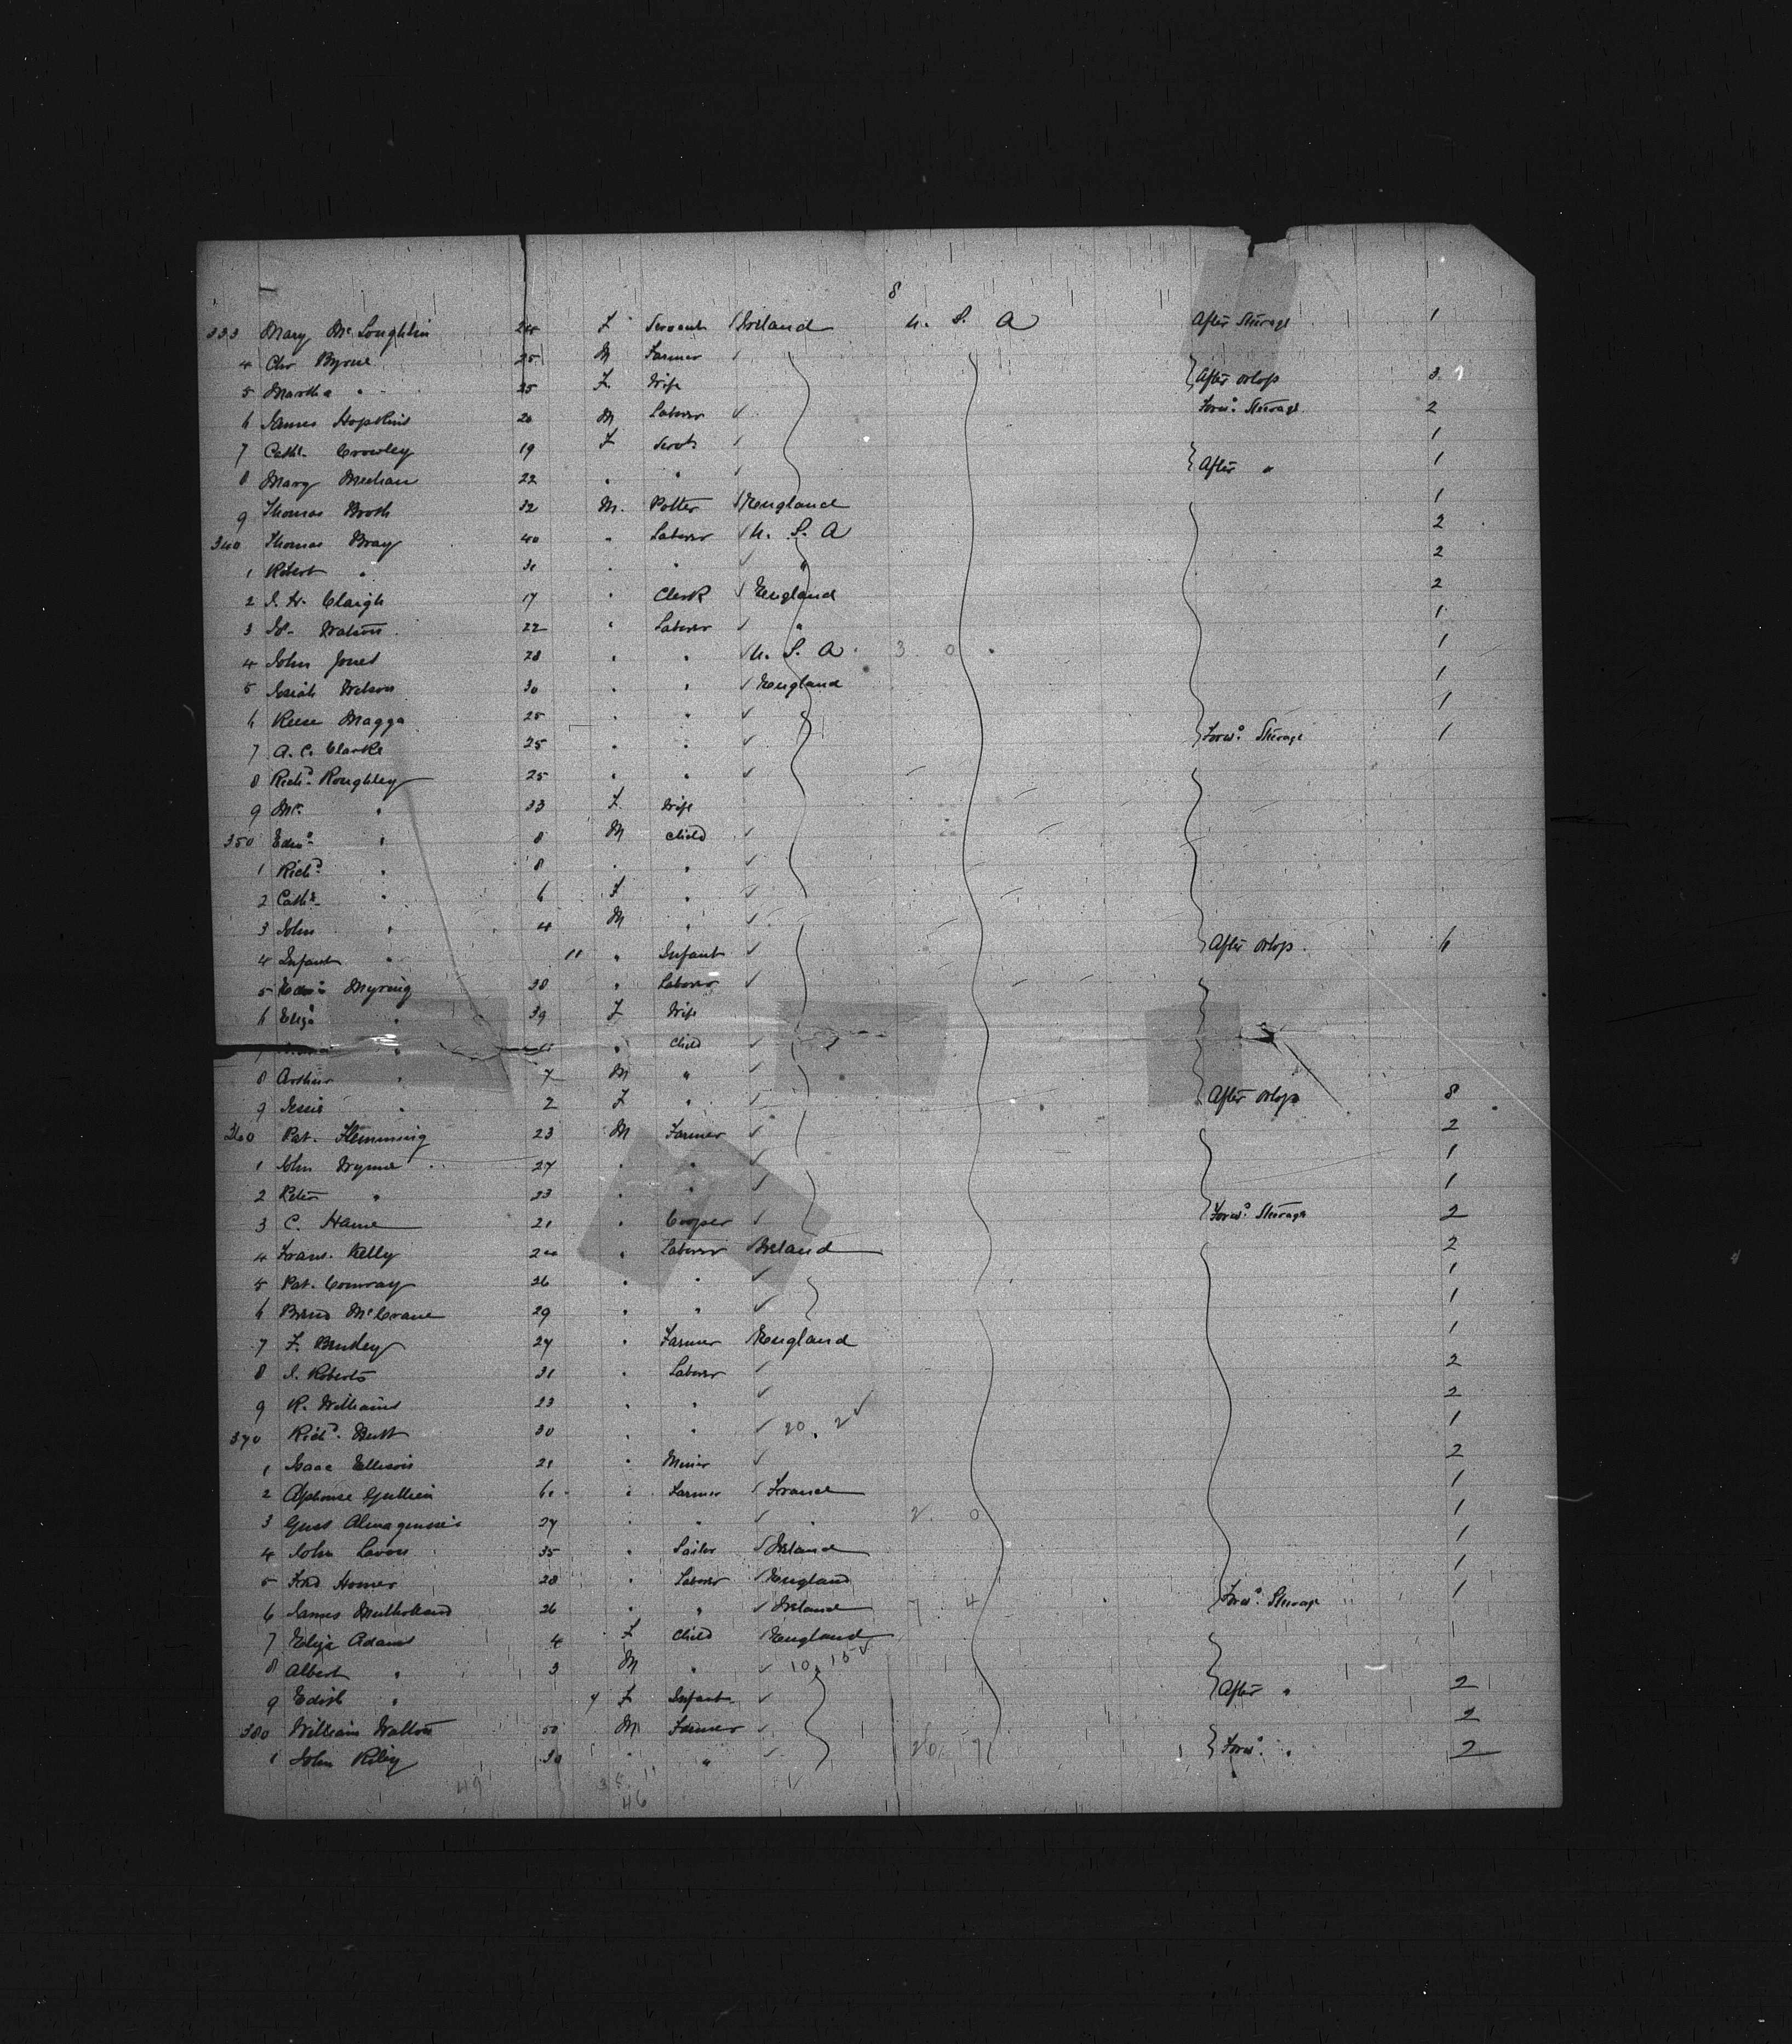 8
333 Mary McLoughlin 24 F Servant Ireland U. S. A After Steerage 1
4 Chr Byrne 25 M Farmer
5 Martha " 25 F Wife After orlop 3
6 James Hopkins 20 M Laborer Forwd. Steerage 2
7 Cath. Crowley 19 F Servt. 1
8 Mary Meehan 22 " " After " 1
9 Thomas Booth 32 M. Potter England 1
340 Thomas Bray 40 " Laborer U. S. A 2
1 Robert " 31 " " " 2
2 17 " Clerk England 2
3 Watson 22 " Laborer " 1
4 John Jones 28 " " U. S. A. 3 0 1
5 Josiah Watson 30 " " England 1
6 Reese Magga 25 " " 1
7 A. C. Clarke 25 " " Forwd. Steerage 1
8 Richd. Roughley 25 " "
9 Mrs. " 23 F. Wife
350 Edwd. " 8 M Child
1 Richd. " 8 " "
2 Cath. " 6 F "
3 John " 4 M "
4 Infant " 11 " Infant After orlop. 6
5 Myring 38 " Laborer
6 Eliza " 39 F Wife
7 " " Child
8 Arthur " 7 M "
9 Jessie " 2 F " After orlop 8
360 Pat. Flemming 23 M Farmer 2
1 John Wynne 27 " " 1
2 Peter " 23 " " 1
3 C. Hame 21 " Cooper Forwd. Steerage 2
4 Frans. Kelly 20 " Laborer Ireland 2
5 Pat. Conway 26 " " 1
6 McCrane 29 " " 1
7 F. 27 " Farmer England 1
8 J. Roberts 31 " Laborer 2
9 R. Williams 23 " " 2
370 Richd. 30 " " 20. 2 1
1 Isaac Ellison 21 " Miner 2
2 Alphonse 61 " Farmer France 1
3 Gust 27 " " " 2. 0 1
4 John Lavon 35 " Sailor Ireland 1
5 Fred Homer 28 " Laborer England 1
6 James Mulholland 26 " " Ireland 7 4 Forwd. Steerage 1
7 Eliza Adams 4 F Child England 1
8 Albert " 3 M " 10. 15
9 Edith " 9 F Infant After " 2
380 William Walton 50 M Farmer 2
1 John Riley 30 " " 26. 7 Forwd. " 2
49 35. 11
46